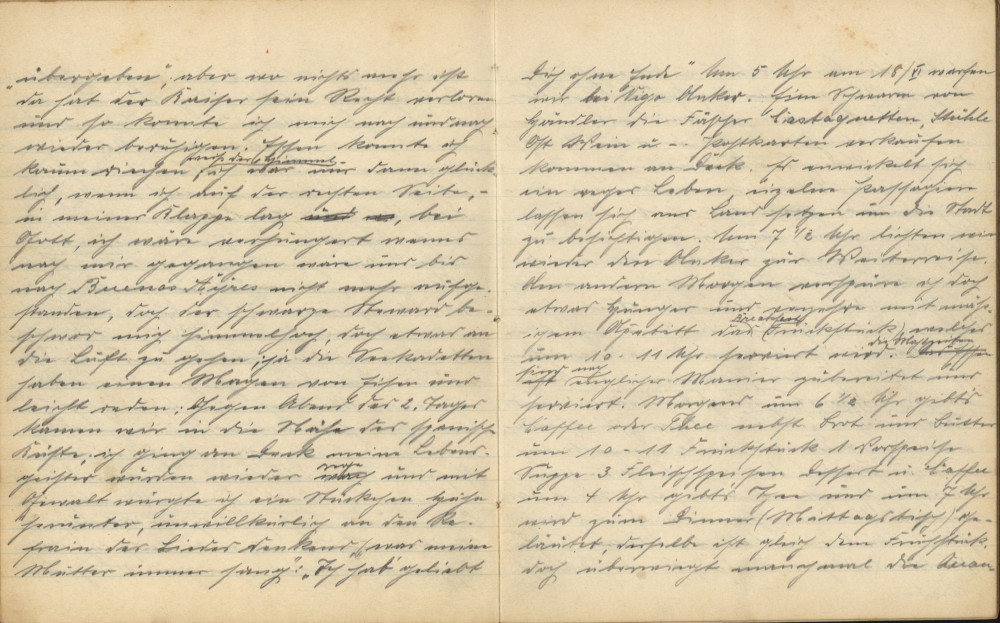 „übergeben", aber wo nichts mehr ist
da hat der Kaiser sein Recht verloren
und so konnte ich mich nach und nach
wieder beruhigen. Essen konnte ich
kaum riechen, ich war nur dann glück-
lich, wenn ich auf der rechten Seite,
in meiner Klappe lag, bei
Gott, ich wäre verhungert wenns
nach mir gegangen wäre und bis
nach Buenos Ayres nicht mehr aufge-
standen, doch der schwarze Steward be-
schwor mich himmelhoch, doch etwas an
die Luft zu gehen, ja die Seekadetten
haben einen Magen von Eisen und
leicht reden; Gegen Abend des 2. Tages
kamen wir in die Nähe der spanisch
Küste, ich ging an Deck meine Lebens-
geister wurden wieder rege und mit
Gewalt würgte ich ein Stückchen Huhn
herunter, unwillkürlich an den Re-
frain des Liedes denkend, (was meine
Mutter immer sang: „Ich hab geliebt
Dich ohne Ende" Um 5 Uhr am 18/VI warfen
wir bei Vigo Anker. Ein Schwarm von
Händler die Fächer Castagnetten, Stühle
Obst Wein u - Postkarten verkaufen
kommen an Deck. Es enwikelt sich
ein reges Leben, eizelne Passagiere
lassen sich ans Land setzen um die Stadt
zu besichtigen. Um 7 1/2 Uhr lichten wir
wieder den Anker zur Weiterreise.
Am andern Morgen verspüre ich doch
etwas Hunger und verzehre mit mäss-
igem Apetitt das (Frühstück), welches
um 10 - 11 Uhr serviert wird. die Malzeiten
sind nach englicher Manier zubereitet und
serviert. Morgens um 6 1/2 Uhr gibts
Caffee oder Thee nebst Brot und Butter
um 10 - 11 Frühstück 1 Vorspeise
Suppe 3 Fleischspeisen Dessert u. Caffee
um 4 Uhr gibts Thee und um 7 Uhr
wird zum Dinner (Mittagstisch) ge-
läutet, derselbe ist gleich dem Frühstück.
doch überwiegt manchmal die Quan-